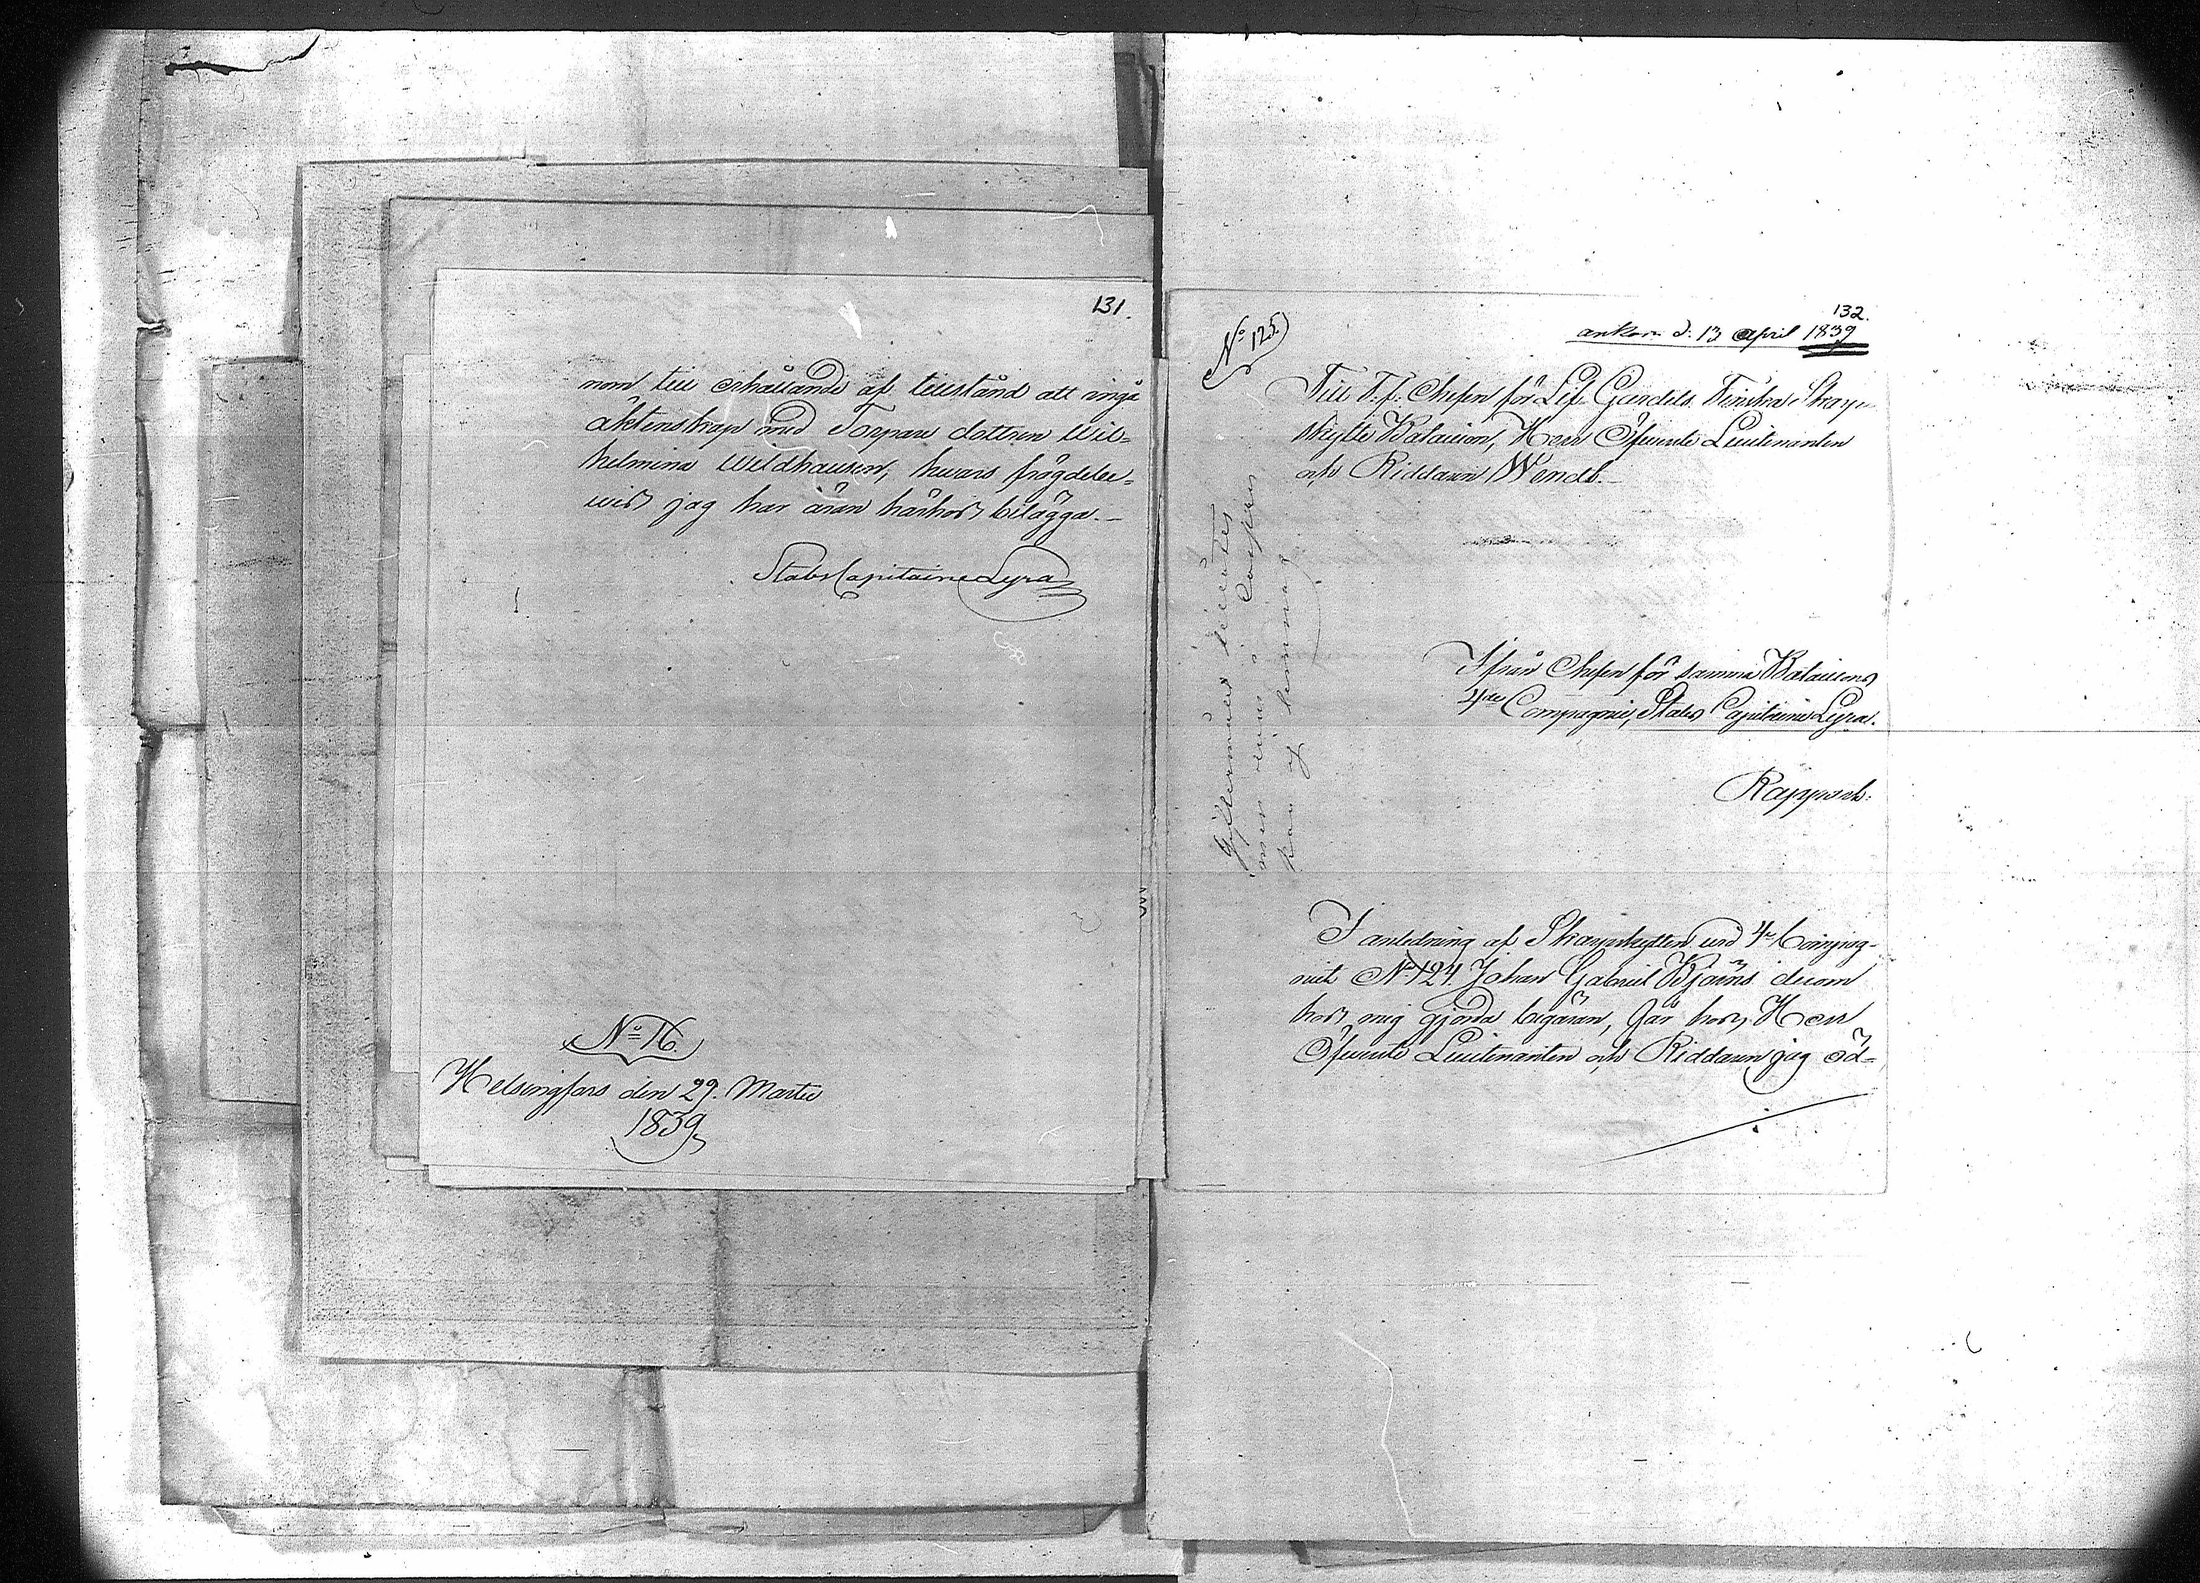 131.
nom till erhållande af tillstånd att ingå
äktenskap med Torpare dottren Wil=
helmina Wildhausen, hwars frägdebe=
wis jag har äran härhos bilägga.—
StabsCapitaine Lyra
No 16.
Helsingfors den 29. Martii
1839
132.
ankom d. 13 April 1839
No 125
Till T. f. Chefen för Lif Gardets Finska Skarp-
skytte Bataillon, Herr Öfwerste Lieutenanten
och Riddaren Wendt.—
Ifrån Chefen för samma Bataillons
4de Compagnie, Stabs Capitaine Lyra.
Rapport.
Giftermåls
I anledning af Skarpskytten wid 4e Compag-
niet No 124 Johan Gabriel Björns derom
hos mig gjorda begäran, får hos Herr
Öfwerste Lieutenanten och Riddaren jag öd-